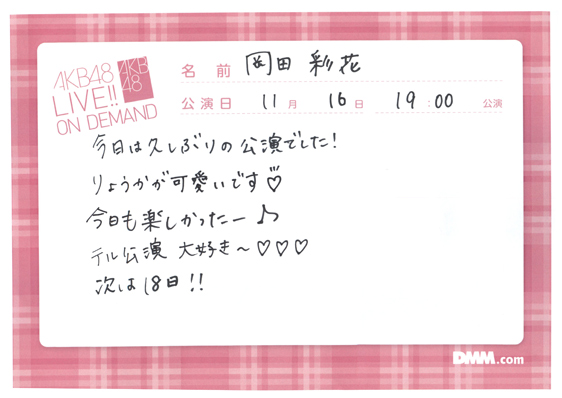 AKB48
LIVE!!
ON DEMAND
AKB
48
名前 岡田 彩花
公演日 11月 16日 19:00 公演
今日は久しぶりの公演でした！
りょうかが可愛いです♡
今日も楽しかったー♪
テル公演 大好き〜♡♡♡
次は18日!!
DMM.com